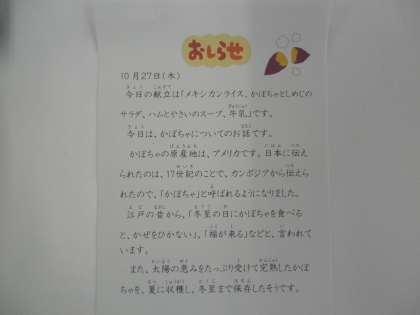 おしらせ
10月27日(木)
今日の献立は「メキシカンライス、かぼちゃとしめじの
サラダ、ハムとやさいのスープ、牛乳」です。
今日は、かぼちゃについてのお話です。
かぼちゃの原産地は、アメリカです。日本に伝え
られたのは、17世紀のことで、カンボジアから伝えら
れたので、「かぼちゃ」と呼ばれるようになりました。
江戸の昔から、「冬至の日にかぼちゃを食べる
と、かぜをひかない」、「福が来る」などと、言われて
います。
また、太陽の恵みをたっぷり受けて完熟したかぼ
ちゃを、夏に収穫し、冬至まで保存したそうです。